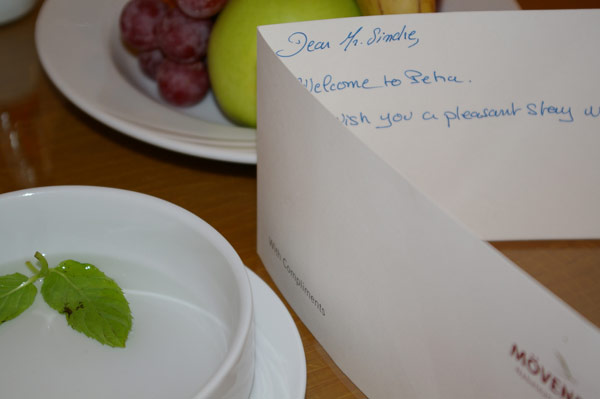 Dear Mr. Sindre,
Welcome to Petra.
wish you a pleasant stay
With Compliments
MÖVENP